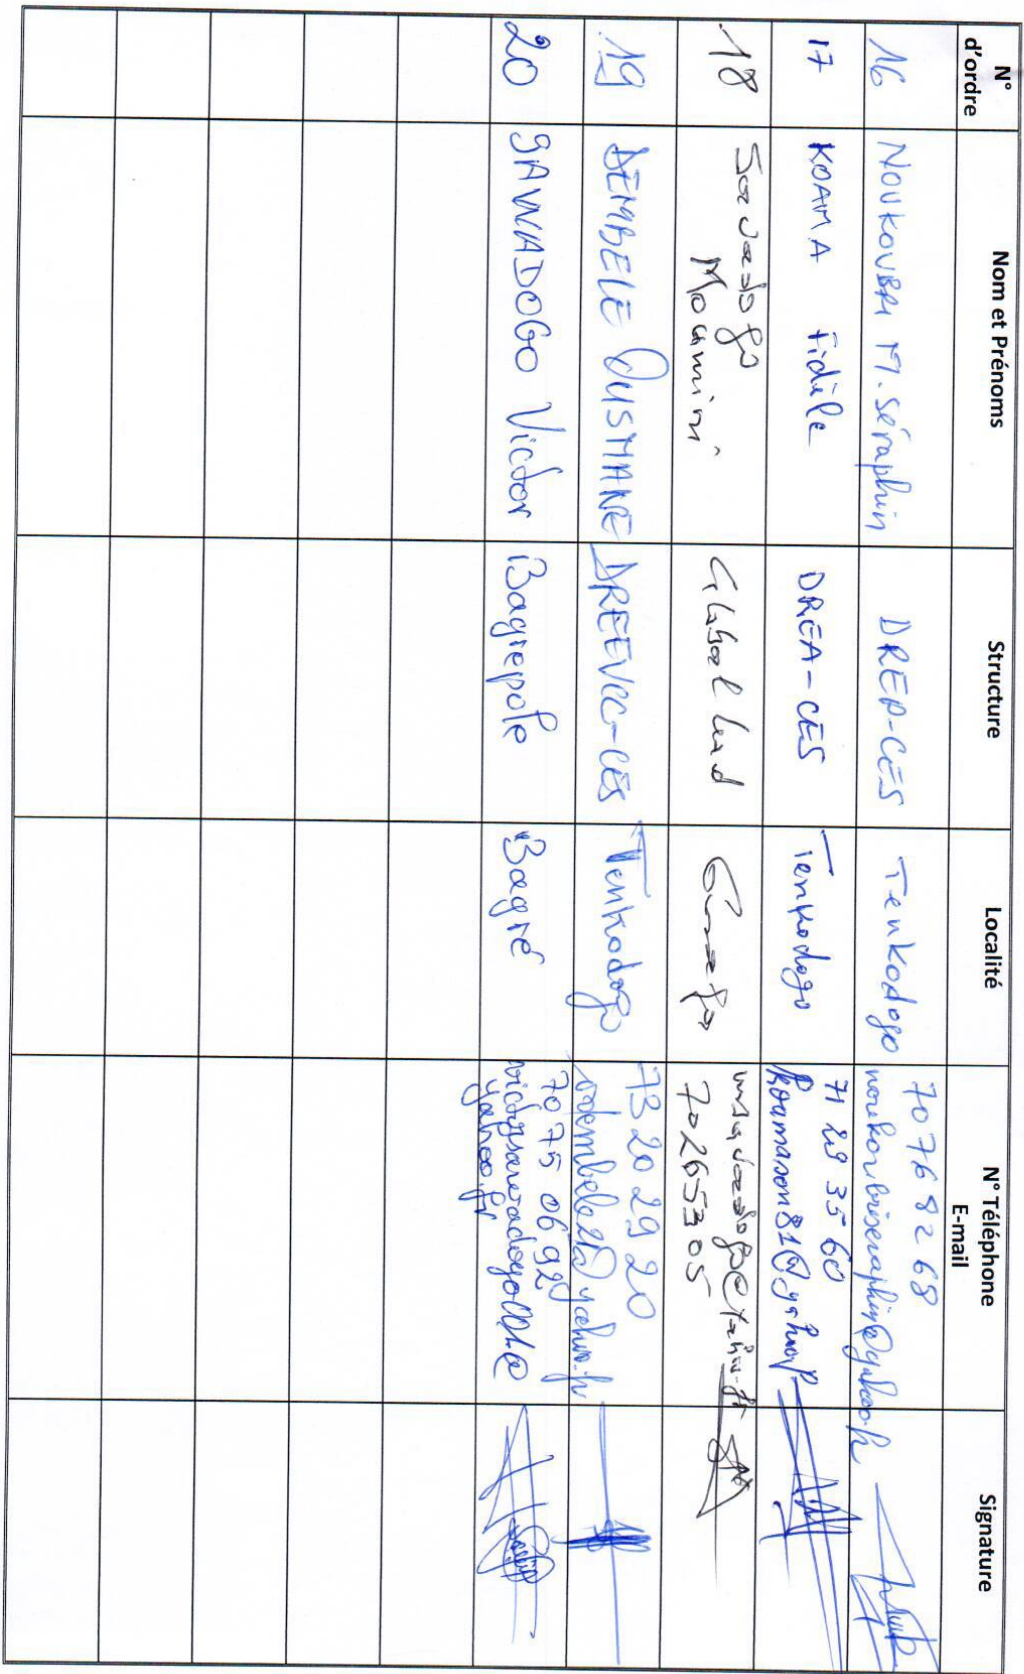 N° d'ordre Nom et Prénoms Structure Localité N° Téléphone E-mail Signature
16 NOUKOUBRI M. Séraphin DREP-CES Tenkodogo 70 76 82 68
noukoubriseraphin@yahoo.fr
17 KOAMA Fidèle DREA-CES Tenkodogo 71 29 35 60
koamason81@yahoo.fr
18 Sawadogo Moumini Global Lead 70265305
19 DEMBELE OUSMANE DREEVCC-CES Tenkodogo 73 20 29 20
20 SAWADOGO Victor Bagrépole Bagré 70 75 06 92
yahoo.fr